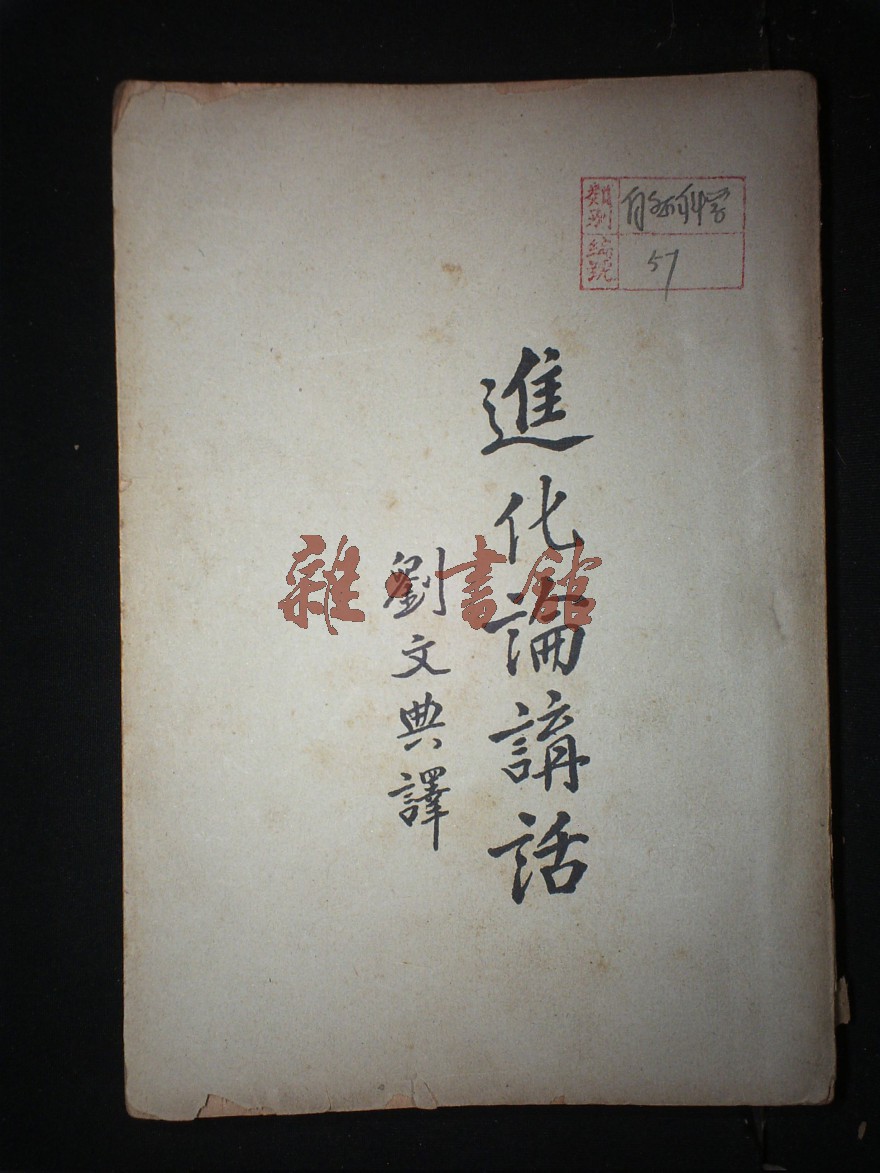 類別 自然科学
編號 57
進化論講話
劉文典譯
雜·書館